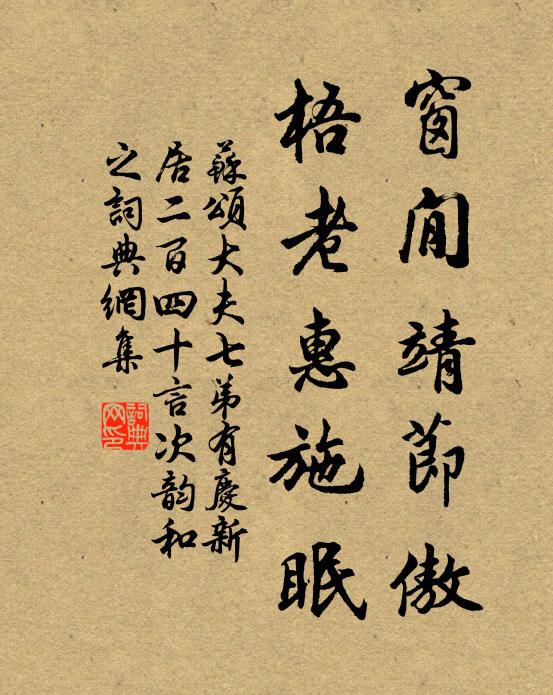 窗閒靖節傲
梧老惠施眠
蘇頌大夫七弟有慶新
居二百四十言次韵和
之詞典網集
詞典
网印